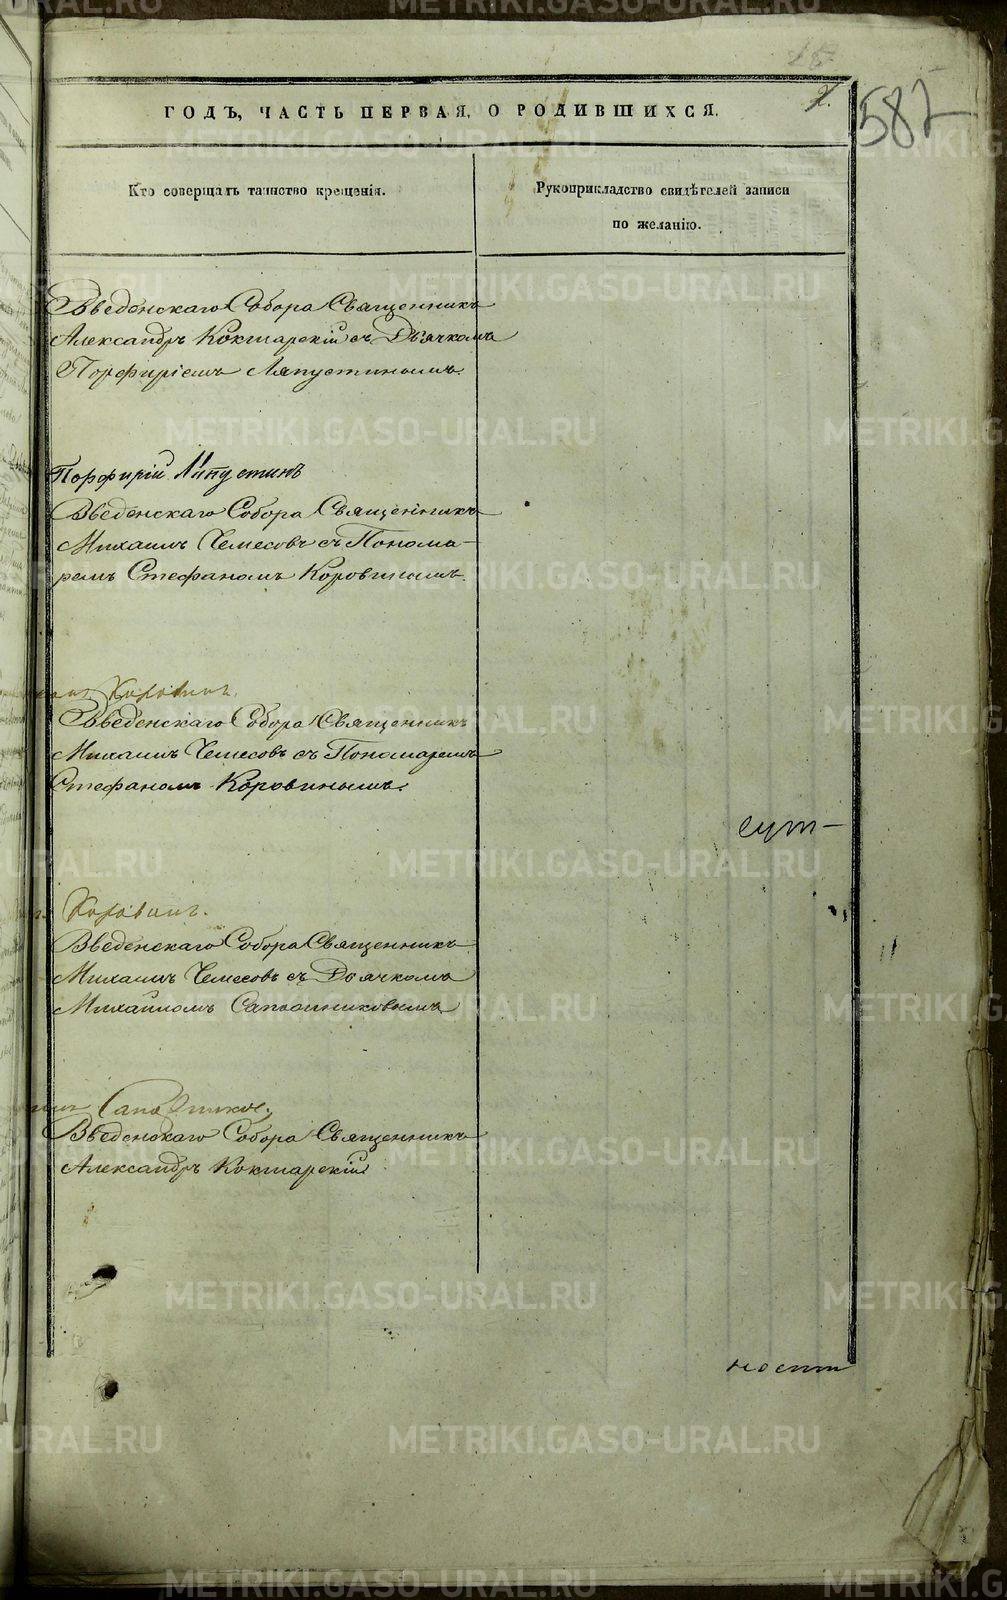 ГОДЪ, ЧАСТЬ ПЕРВАЯ, О РОДИВШИХСЯ.
587
Кто совершалъ таинство крещенія.
Рукоприкладство свидѣтелей записи
по желанію.
Введенскаго Собора Священникъ
Александръ Кокшарскій съ Дьячкомъ
Порфиріемъ Ляпустинымъ.
Порфирій Ляпустинъ
Введенскаго Собора Священникъ
Михаилъ Чемесовъ съ Понома-
ремъ Стефаномъ Коровинымъ.
Коровинъ.
Введенскаго Собора Священникъ
Михаилъ Чемесовъ съ Пономаремъ
Стефаномъ Коровинымъ.
сут-
Коровинъ.
Введенскаго Собора Священникъ
Михаилъ Чемесовъ съ Дьячкомъ
Михаиломъ Сапожниковымъ
Сапожниковъ
Введенскаго Собора Священникъ
Александръ Кокшарскій
ност
METRIKI.GASO-URAL.RU